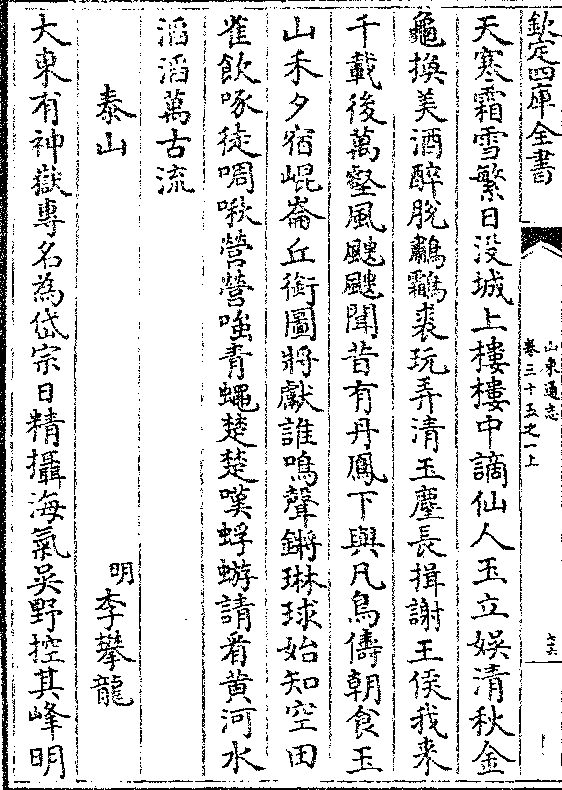 欽定四庫全書
山東通志
卷三十五之一上
天寒霜雪繁日沒城上樓樓中謫仙人玉立娱清秋金
龜換美酒醉脫鷫鸘裘玩弄清玉塵長揖謝王侯我來
千載後萬壑風颼颼聞昔有丹鳳下與凡鳥儔朝食玉
山禾夕宿崐崙丘銜圖將獻誰鳴聲鏘琳球始知空田
雀飲啄徒啁啾營營嗤青蠅楚楚嘆蜉蝣請看黄河水
滔滔萬古流
泰山
明李攀龍
大東有神嶽專名為岱宗日精攝海氣吴野控其峰明